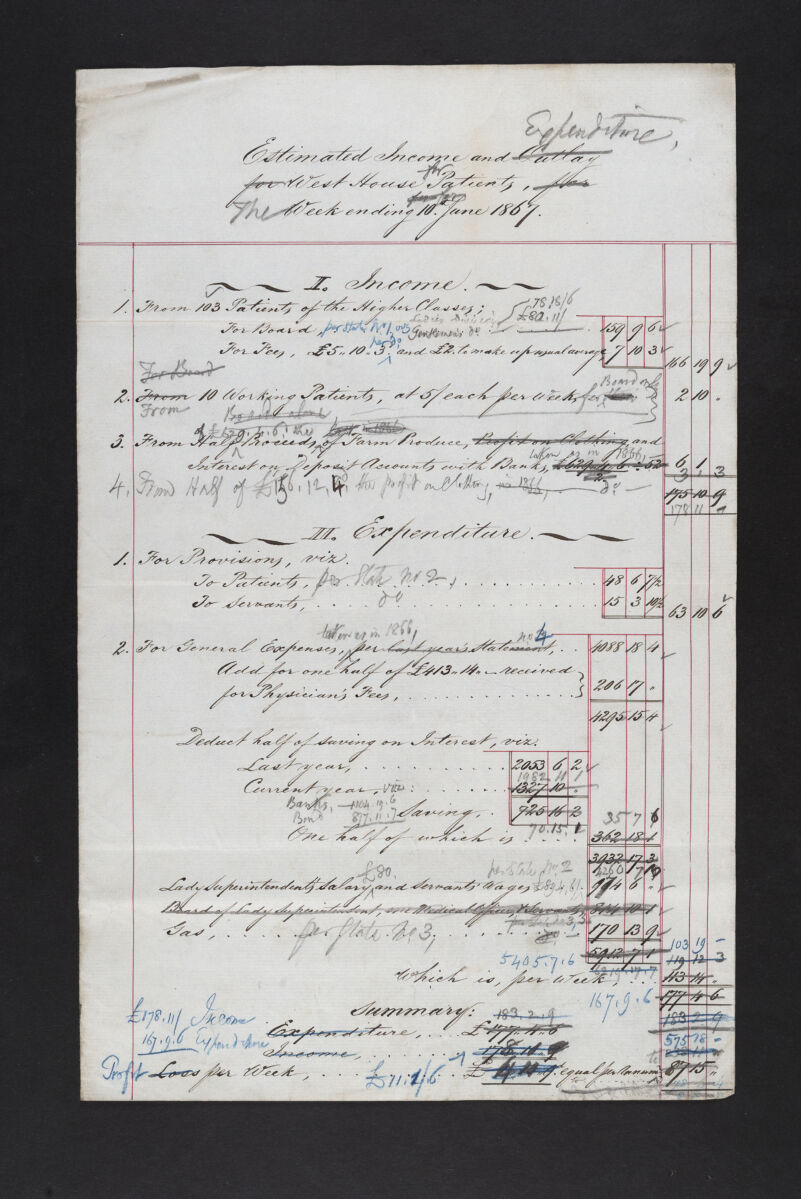 Expenditure,
Estimated Income and Outlay
for West House Patients, for
The Week ending 10th June 1867.
I. Income.
1. From 103 Patients of the Higher Classes:
78.18/6
For Board, per State No 1, Ladies Division £80.11/ 159 9 6
Gentlemen's do
For Fees, £5"10"3 and £2 to make up usual average, 7 10 3
166 19 9
For Board
2. From 10 Working Patients, at 5/ each per week, for Board only 2 10 "
From
Board alone
of £629.4.6, the last in 1866
3. From Half Proceeds of Farm Produce, Profit on Clothing and
taken as in 1866,
Interest on Deposit Accounts with Banks, £629.4.6 ÷ 52 6 1 3
2
4. From Half of £156.12.4, the profit on Clothing, in 1866, do 3
175 10 9
178 11 "
II. Expenditure.
1. For Provisions, viz.
To Patients, per State No 2, 48 6 7½
To Servants, do 15 3 10½
63 10 6
taken as in 1866, No 4
2. For General Expenses, per last year's Statement, 4088 18 4
Add for one half of £413"14"- received
for Physician's Fees, 206 17 "
4295 15 4
Deduct half of saving on Interest, viz.
Last year, 2053 6 2
1982 11 1
Current year, viz: 1327 10 "
Banks, 1104.19.6
Bond 877.11.7 Saving, 725 16 2
35 7 6
70.15.1
One half of which is 362 18 1
3932 17 3
4260 7 10
£80. per State No. 2
Lady Superintendent's Salary, and Servants' Wages £894.6/. 974 6 "
Board of Lady Superintendent, one Medical Officer, & Servants, 814 10 1
Gas, per State No 3, 170 13 9
5912 7 1
103 19 -
5405.7.6
119 12 3
Which is, per Week, 113 14 "
177 4 6
167.9.6
Summary: 183.2.9
183 2 9
£178.11/ Income
Expenditure, £177.4.6
167.9.6 Expenditure
575 18 -
Income, 178.11.9
Profit Loss per Week, £11.1/6 £4.11.9 equal per Annum to 87 15 "